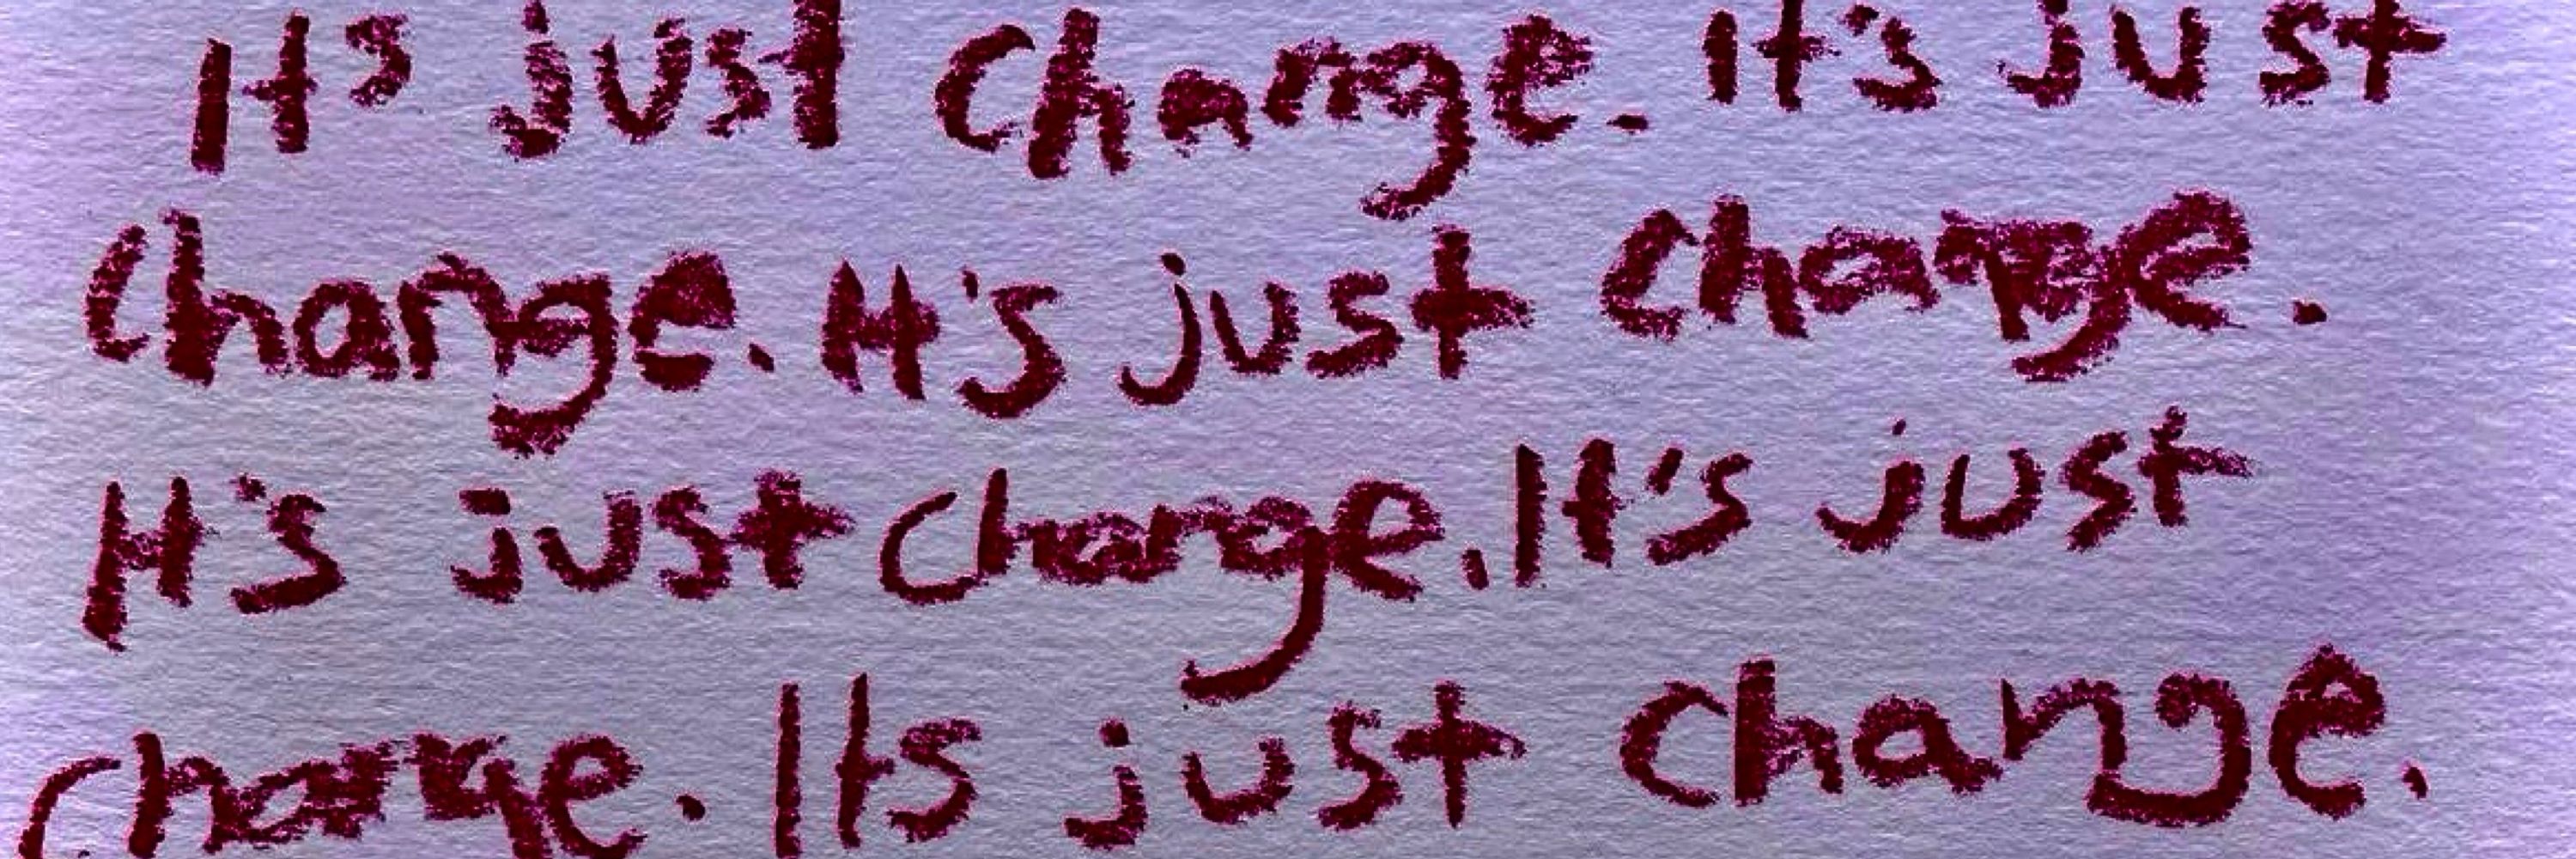 Its just change. It's just
change. It's just change.
It's just change. It's just
change. Its just change.